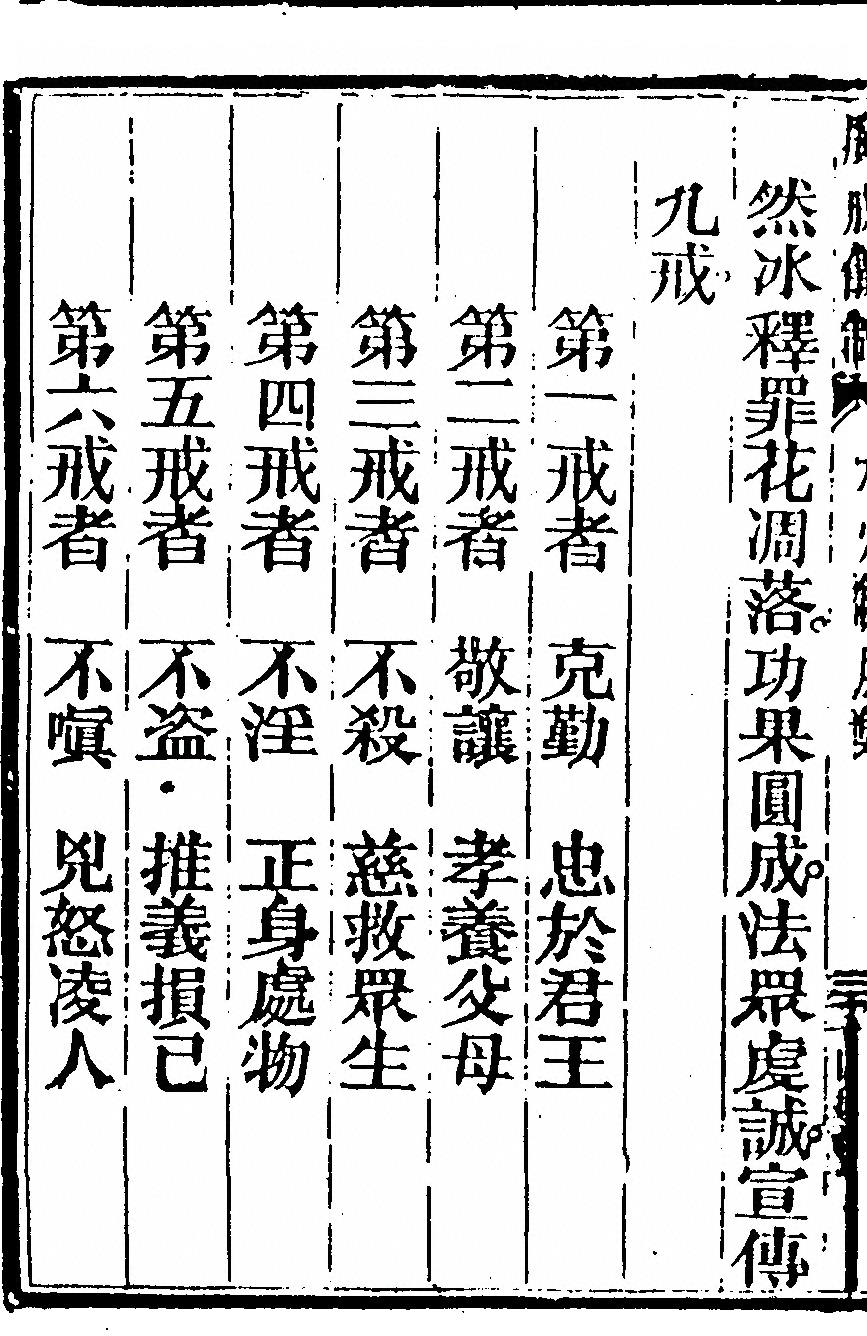 然冰釋罪花凋落功果圓成法眾虔誠宣傳
九戒
第一戒者　克勤　忠於君王
第二戒者　敬讓　孝養父母
第三戒者　不殺　慈救眾生
第四戒者　不淫　正身處物
第五戒者　不盗　推義損己
第六戒者　不嗔　兇怒凌人